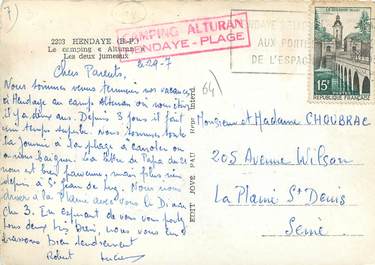 7)
2203 HENDAYE (B.-P.)
Le camping « Alturan »
Les deux jumeaux
CAMPING ALTURAN
HENDAYE - PLAGE
HENDAYE
AUX PORTES
DE L'ESPAGNE
LE QUESNOY NORD
15F
REPUBLIQUE FRANÇAISE
Chers Parents, le 29-7
Nous sommes venus terminer nos vacances
à Hendaye au camp Alturan où nous étions
il y a deux ans. Depuis 3 jours il fait
un temps superbe. Nous sommes toute
la journée à la plage à canoter ou
nous baigner. La lettre de Papa de
nous est bien parvenue, mais plus rien
depuis à St Jean de Luz. Nous nous
arriver à la Plaine avec vous le Dimanche
3. En espérant de vous
tous deux très bien, nous vous em
brassons bien tendrement
Robert Lucien
EDIT JOVE PAU
Repr Interd
64)
Monsieur et Madame CHOUBRAC
205 Avenue Wilson
La Plaine St Denis
Seine